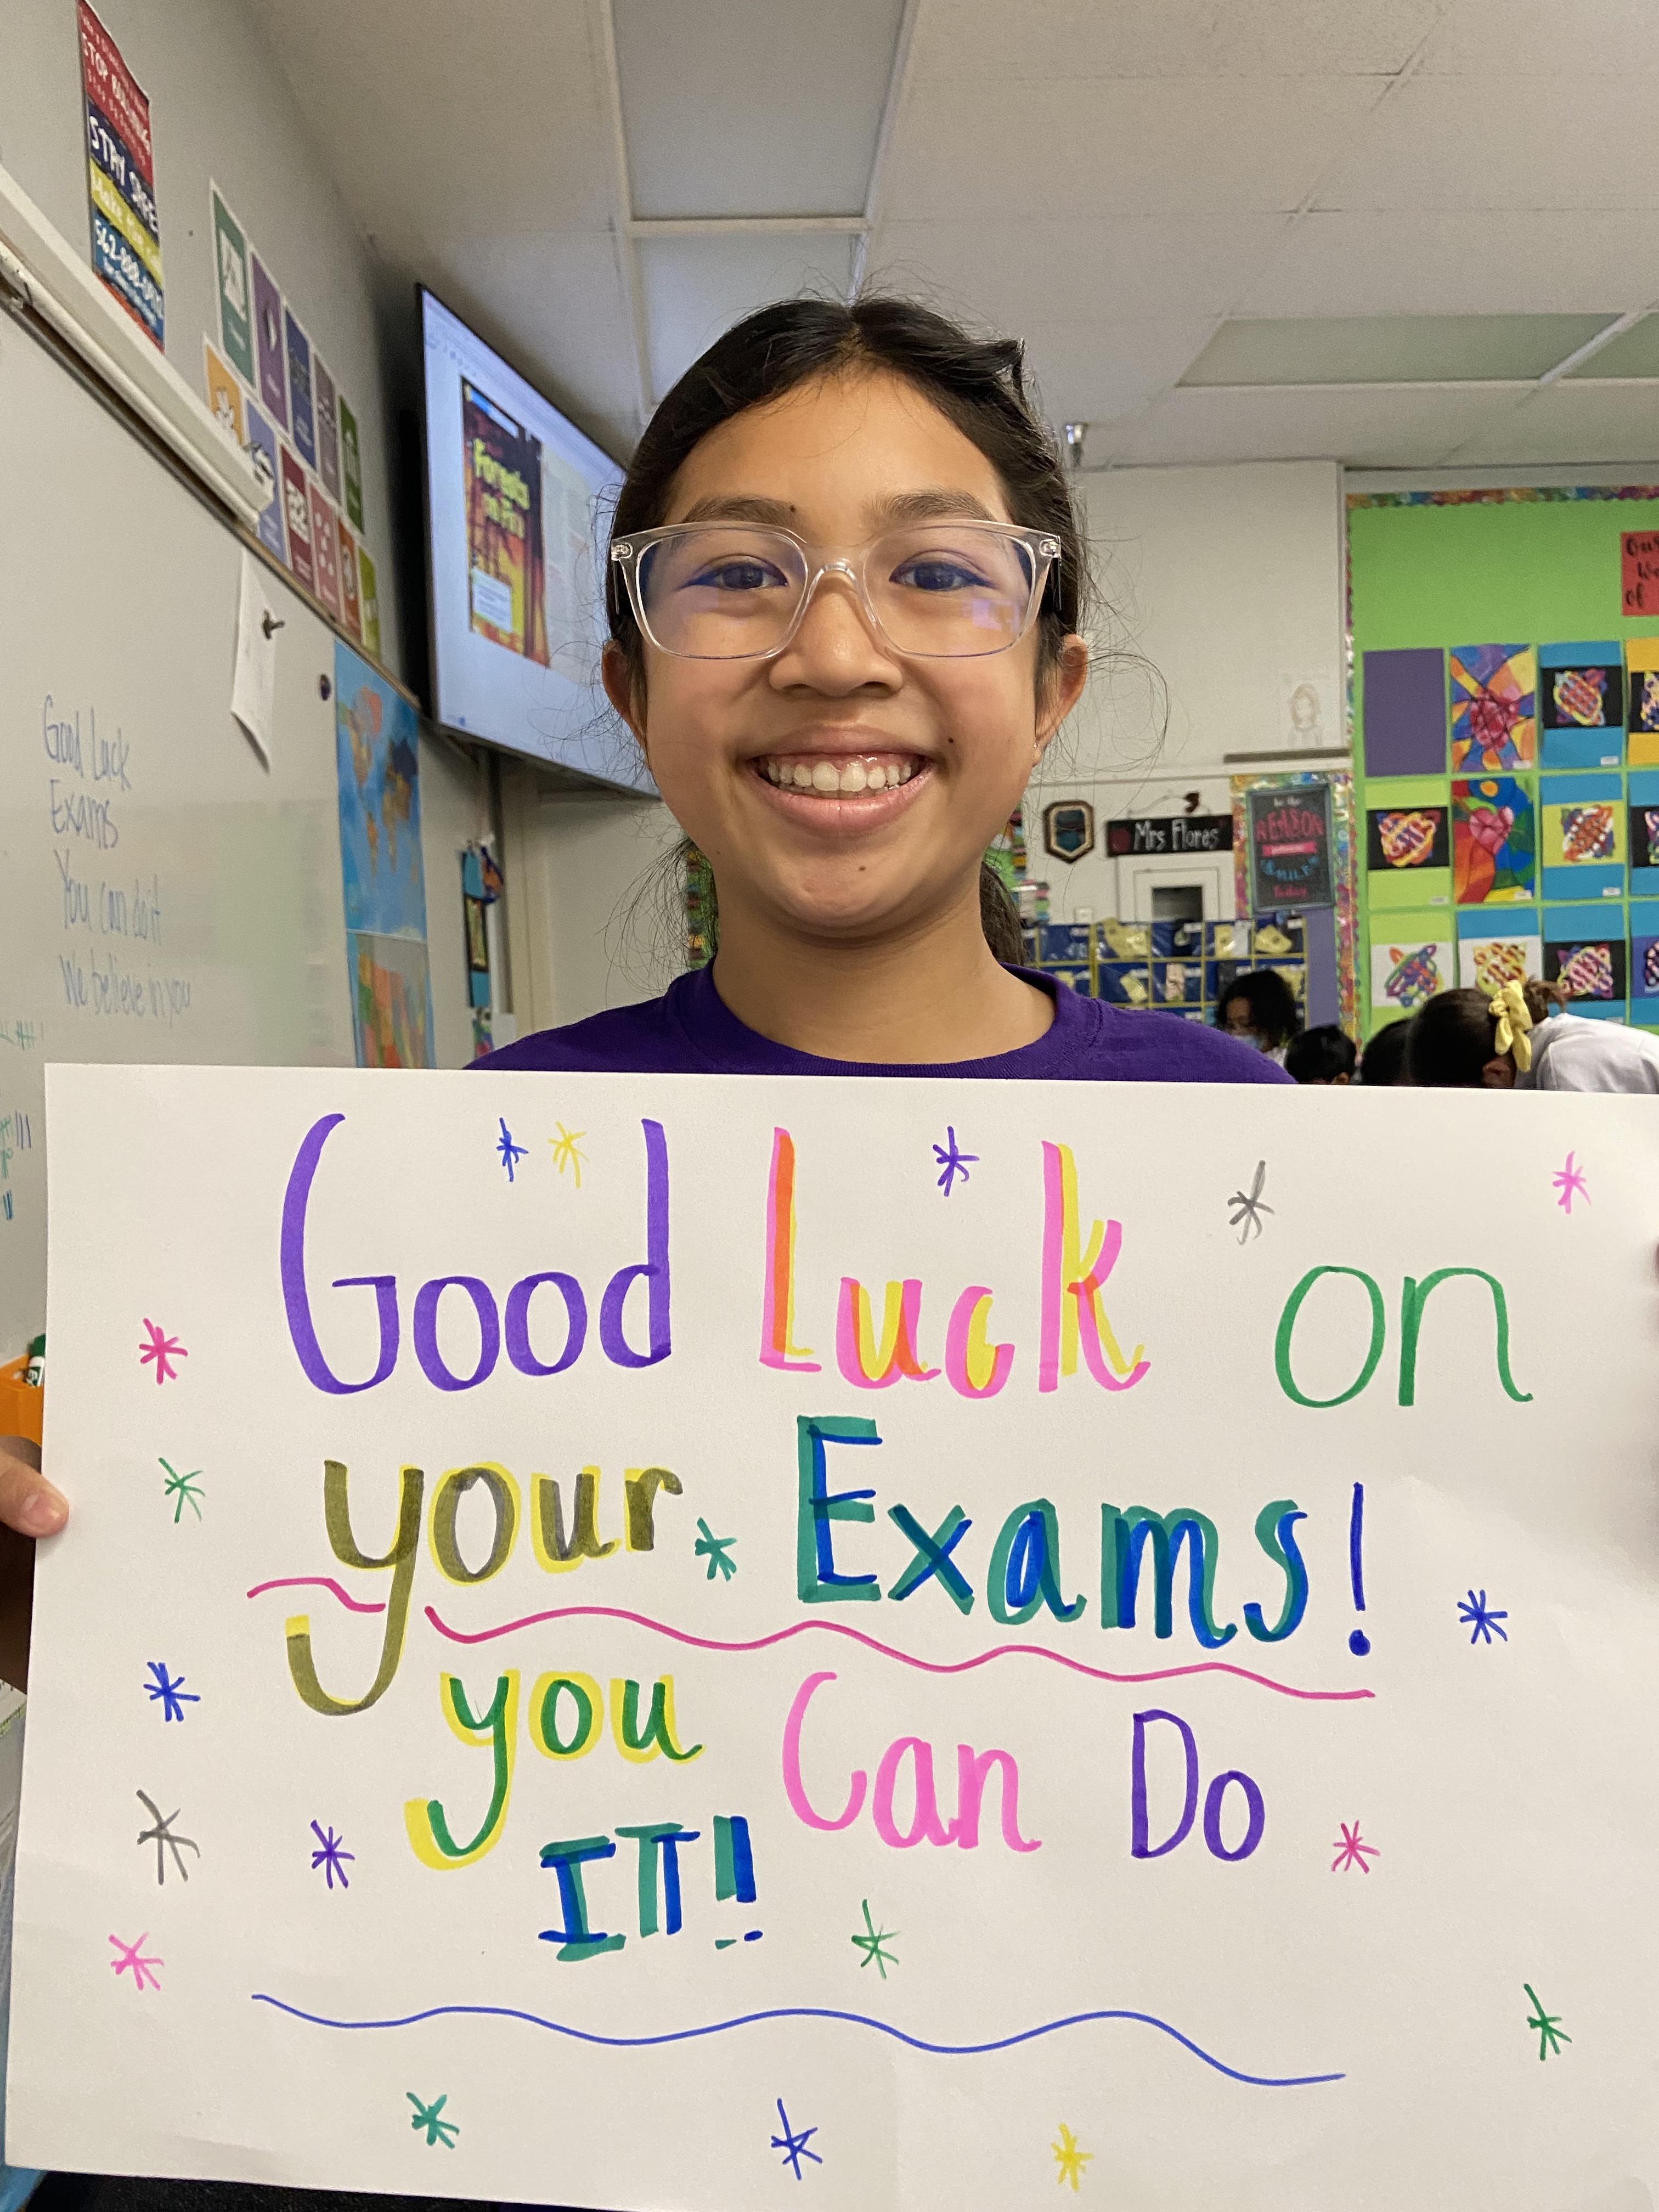 STOP BULLYING
STAY SAFE
Make the call
Forests
on Fire
Good Luck
Exams
You can do it
We believe in you
Our
of
Mrs Flores
be the
REASON
SMILES
Today
Good Luck on
your Exams!
you Can Do
IT!!